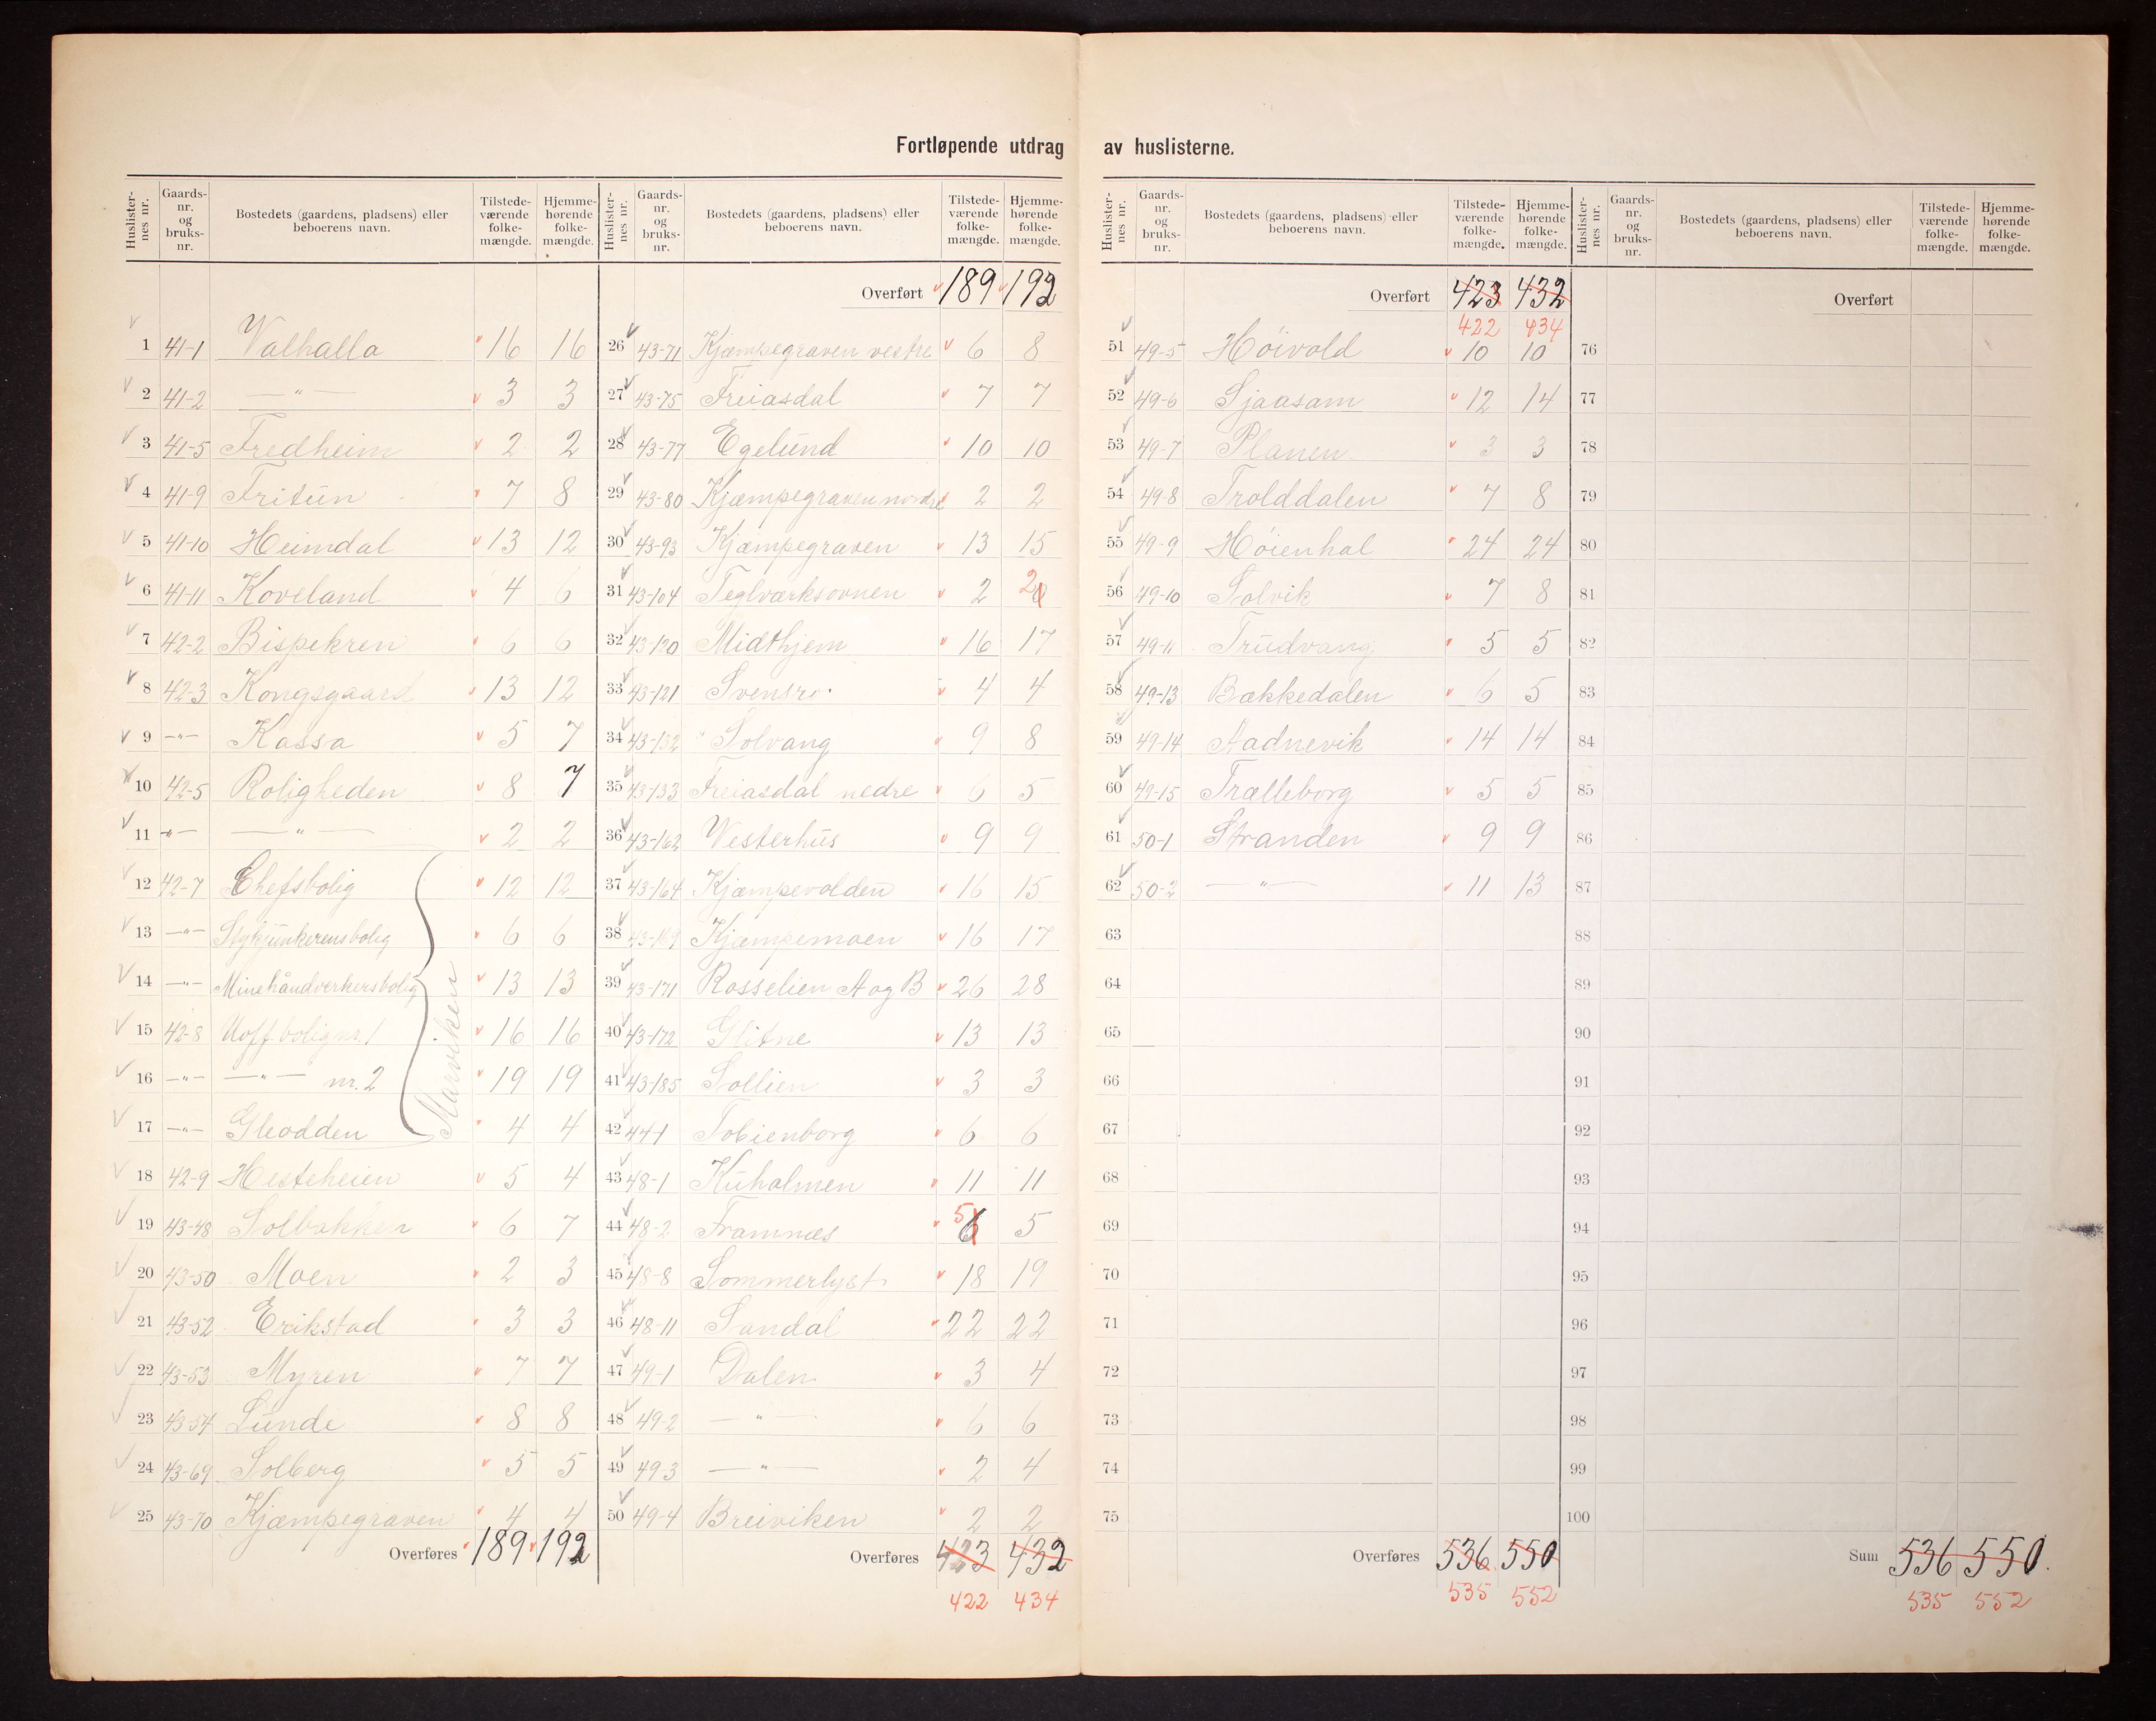 Fortløpende utdrag av huslisterne.
Huslisternes nr. Gaards-nr. og bruks-nr. Bostedets (gaardens, pladsens) eller beboerens navn. Tilstede-værende folke-mængde. Hjemme-hørende folke-mængde.
1 41-1 Valhalla 16 16
2 41-2 —"— 3 3
3 41-5 Fredheim 2 2
4 41-9 Fritün 7 8
5 41-10 Heimdal 13 12
6 41-11 Koveland 4 6
7 42-2 Bispekren 6 6
8 42-3 Kongsgaard 13 12
9 —"— Kassa 5 7
10 42-5 Roligheden 8 7
11 —"— —"— 2 2
12 42-7 Chefsbolig 12 12
13 —"— Stykjunkerensbolig 6 6
14 —"— Minehåndverkersbolig 13 13
15 42-8 Uoff. bolig nr. 1 16 16
16 —"— —"— nr. 2 19 19
17 —"— Gleodden 4 4
Marviken
18 42-9 Hesteheien 5 4
19 43-48 Solbakken 6 7
20 43-50 Moen 2 3
21 43-52 Erikstad 3 3
22 43-53 Myren 7 7
23 43-54 Lünde 8 8
24 43-69 Solberg 5 5
25 43-70 Kjæmpegraven 4 4
Overføres 189 192
Huslisternes nr. Gaards-nr. og bruks-nr. Bostedets (gaardens, pladsens) eller beboerens navn. Tilstede-værende folke-mængde. Hjemme-hørende folke-mængde.
Overført 189 192
26 43-71 Kjæmpegraven vestre 6 8
27 43-75 Freiasdal 7 7
28 43-77 Egelünd 10 10
29 43-80 Kjæmpegraven nordre 2 2
30 43-93 Kjæmpegraven 13 15
31 43-104 Teglværksovnen 2 2
32 43-120 Midthjem 16 17
33 43-121 Svensro. 4 4
34 43-132 Solvang 9 8
35 43-133 Freiasdal nedre 6 5
36 43-162 Vesterhüs 9 9
37 43-164 Kjæmpevolden 16 15
38 43-169 Kjæmpemoen 16 17
39 43-171 Rosselien A og B 26 28
40 43-172 Glitne 13 13
41 43-185 Sollien 3 3
42 44-1 Tobienborg 6 6
43 48-1 Küholmen 11 11
44 48-2 Framnæs 6 5 5
45 48-8 Sommerlyst 18 19
46 48-11 Sandal 22 22
47 49-1 Dalen 3 4
48 49-2 —"— 6 6
49 49-3 —"— 2 4
50 49-4 Breiviken 2 2
Overføres 423 432
422 434
Huslisternes nr. Gaards-nr. og bruks-nr. Bostedets (gaardens, pladsens) eller beboerens navn. Tilstede-værende folke-mængde. Hjemme-hørende folke-mængde.
Overført 423 432
422 434
51 49-5 Höivold 10 10
52 49-6 Sjaasam 12 14
53 49-7 Planen 3 3
54 49-8 Trolddalen 7 8
55 49-9 Höienhal 24 24
56 49-10 Solvik 7 8
57 49-11 Trüdvang 5 5
58 49-13 Bækkedalen 6 5
59 49-14 Aadnevik 14 14
60 49-15 Trælleborg 5 5
61 50-1 Stranden 9 9
62 50-2 —"— 11 13
63
64
65
66
67
68
69
70
71
72
73
74
75
Overføres 536 550
535 552
Huslisternes nr. Gaards-nr. og bruks-nr. Bostedets (gaardens, pladsens) eller beboerens navn. Tilstede-værende folke-mængde. Hjemme-hørende folke-mængde.
Overført
76
77
78
79
80
81
82
83
84
85
86
87
88
89
90
91
92
93
94
95
96
97
98
99
100
Sum 536 550.
535 552